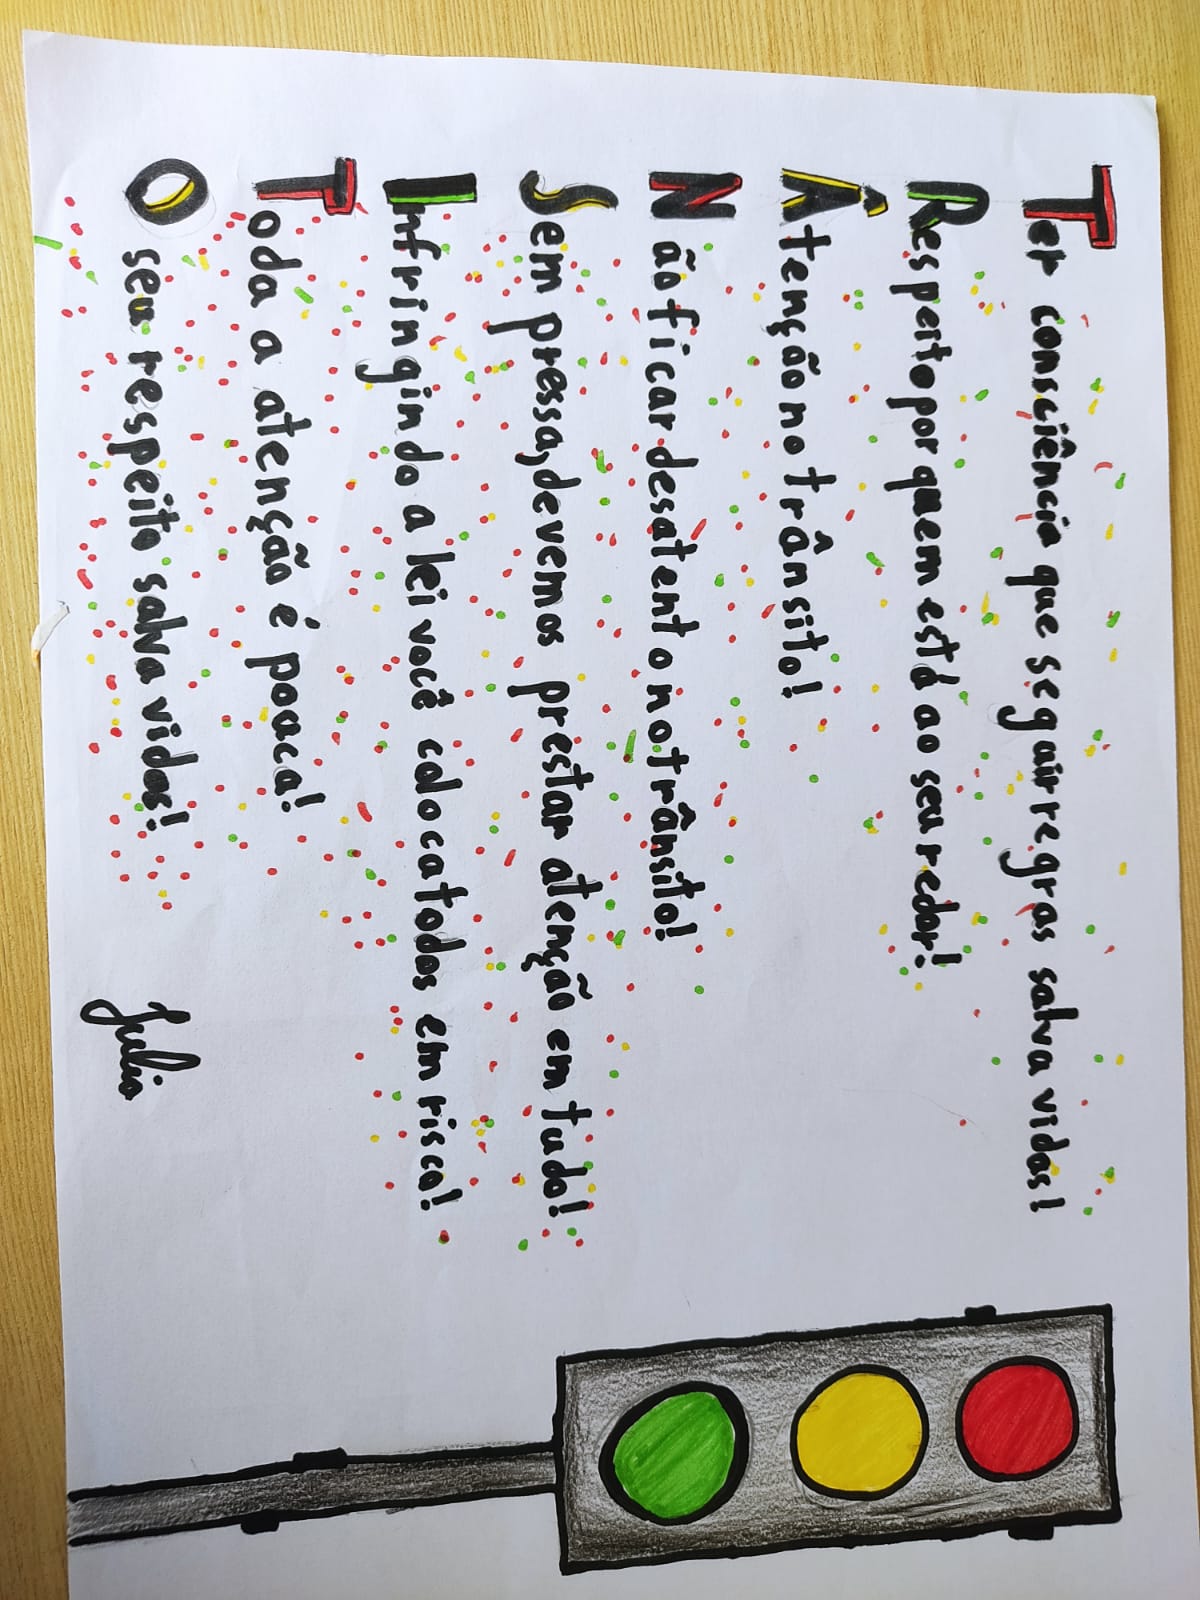 Ter consciência que seguir regras salva vidas!
Respeito por quem está ao seu redor!
Âtenção no trânsito!
Não ficar desatento no trânsito!
Sem pressa, devemos prestar atenção em tudo!
Infringindo a lei você coloca todos em risco!
Toda a atenção é pouca!
O seu respeito salva vidas!
Julia